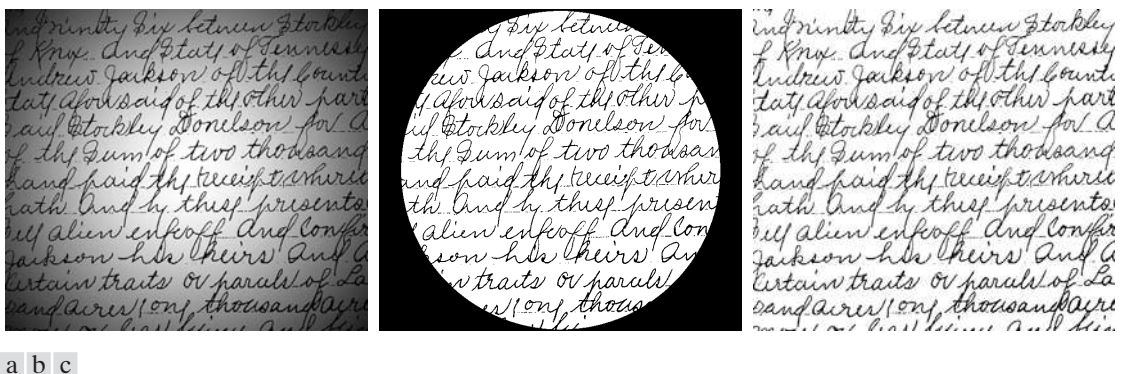 ind ninety Six between Stockley
of Knox and State of Tennessee
Andrew Jackson of the Count
tate aforesaid of the other part
said Stockley Donelson for a
of the Sum of two thousand
hand paid the receipt where
hath and by these presents
ell alien enfeoff and Confir
Jackson his heirs and a
Certain traits or parcels of La
sand acres ong thousand acre
y Six between
and State of Ten
rew Jackson of the C
aforesaid of the other p
aid Stockley Donelson for
the Sum of two thousan
and paid the receipt wher
th and by these present
alien enfeoff and Con
kson his heirs an
n traits or parcels
es ong thous
ind ninety Six between Stockley
of Knox and State of Tennessee
Andrew Jackson of the Count
tate aforesaid of the other part
said Stockley Donelson for a
of the Sum of two thousand
hand paid the receipt where
hath and by these presents
ell alien enfeoff and Confir
Jackson his heirs and a
Certain traits or parcels of La
sand acres ong thousand acre
a b c